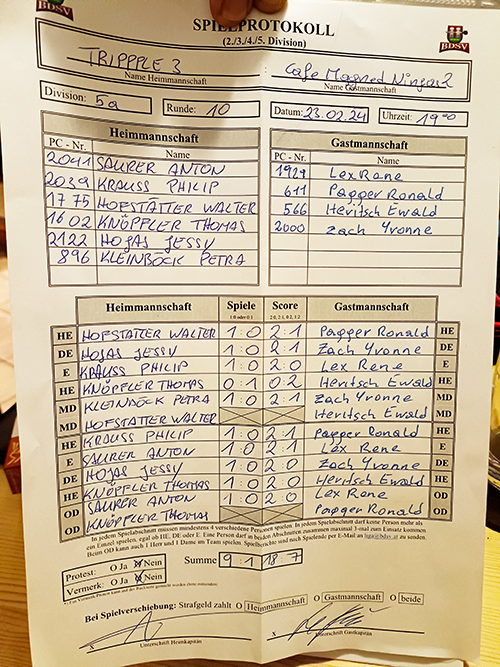 BDSV
BDSV
SPIELPROTOKOLL
(2./3./4./5. Division)
TRIPPPLE 3 : Cafe Magned Ninja 2
Name Heimmannschaft Name Gastmannschaft
Division: 5a Runde: 10 Datum: 23.02.24 Uhrzeit: 19 00
Heimmannschaft Gastmannschaft
PC - Nr. Name PC - Nr. Name
2041 SAURER ANTON 1929 Lex Rene
2039 KRAUSS PHILIP 611 Pagger Ronald
1775 HOFSTÄTTER WALTER 566 Heritsch Ewald
1602 KNÖPFLER THOMAS 2000 Zach Yvonne
2122 HOJAS JESSY
896 KLEINBÖCK PETRA
Heimmannschaft Spiele Score Gastmannschaft
1:0 oder 0:1 2:0, 2:1, 0:2, 1:2
HE HOFSTÄTTER WALTER 1:0 2:1 Pagger Ronald HE
DE HOJAS JESSY 1:0 2:1 Zach Yvonne DE
E KRAUSS PHILIP 1:0 2:0 Lex Rene E
HE KNÖPFLER THOMAS 0:1 0:2 Heritsch Ewald HE
MD KLEINBÖCK PETRA 1:0 2:1 Zach Yvonne MD
MD HOFSTÄTTER WALTER Heritsch Ewald MD
HE KRAUSS PHILIP 1:0 2:1 Pagger Ronald HE
E SAURER ANTON 1:0 2:1 Lex Rene E
DE HOJAS JESSY 1:0 2:0 Zach Yvonne DE
HE KNÖPFLER THOMAS 1:0 2:0 Heritsch Ewald HE
OD SAURER ANTON 1:0 2:0 Lex Rene OD
OD KNÖPFLER THOMAS Pagger Ronald OD
In jedem Spielabschnitt müssen mindestens 4 verschiedene Personen spielen. In jedem Spielabschnitt darf keine Person mehr als
ein Einzel spielen, egal ob HE, DE oder E. Eine Person darf in beiden Abschnitten zusammen maximal 3-mal zum Einsatz kommen.
Beim OD kann auch 1 Herr und 1 Dame im Team spielen. Spielberichte sind nach Spielende per E-Mail an liga@bdsv.at zu senden.
Protest: O Ja O Nein Summe 9:1 18:7
Vermerk: O Ja O Nein
Bei Spielverschiebung: Strafgeld zahlt O Heimmannschaft O Gastmannschaft O beide
X X
Unterschrift Heimkapitän Unterschrift Gastkapitän